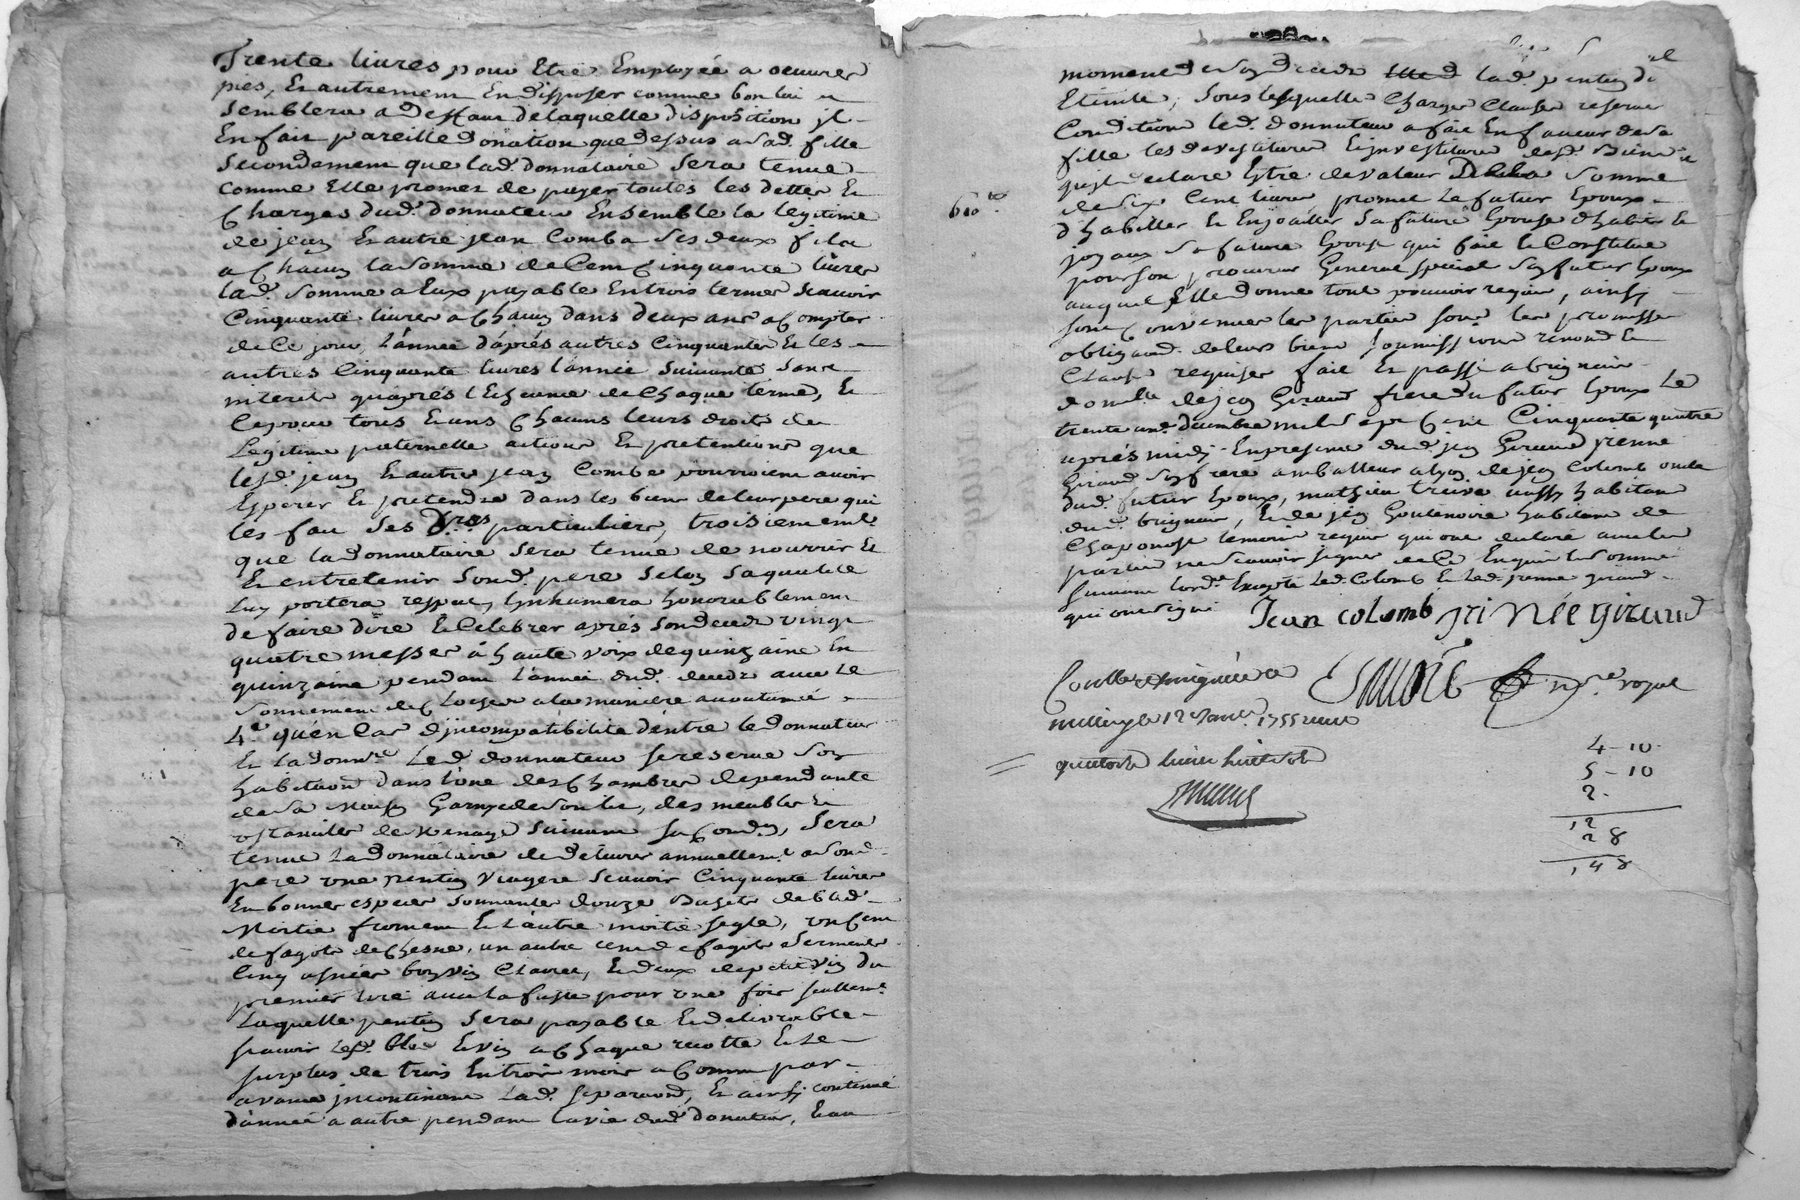 Trente livres pour Etre Employée a oeuvres
pies, Et autrement En disposer comme bon lui
semblera a deffaut de laquelle disposition jl
En fait pareille donation que dessus a sad. fille
secondement que lad. donnataire sera tenue
comme Elle promet de payer toutes les dettes Et
Charges dud. donnateur Ensemble la legitime
de jean Et autre jean Comba ses deux fils
a Chacun la somme de Cent Cinquante livres
lad. somme a Eux payable En trois termes scavoir
Cinquante livres a Chacun dans deux ans a Compter
de Ce jour, l'année d'aprés autres Cinquante Et les
autres Cinquante livres l'année suivante sans
interets qu'aprés l'Echeance de Chaque terme, Et
Ce pour tous Et uns Chacuns leurs droits de
Legitime paternelle actions Et pretentions que
lesd. jean Et autre jean Comba pourroient avoir
Esperer Et pretendre dans les biens de leur pere qui
les fait ses particuliers, troisiement
que la donnataire sera tenue de nourrir Et
Et entretenir sond. pere selon sa qualité
Luy portera respect, Jnhumera honorablement
de faire dire Et Celebrer aprés son deceds vingt
quatre messes a haute voix de quinzaine En
quinzaine pendant l'année dud. deceds avec Le
sonnement des Cloches a la maniere accoutumée
4.e qu'en Cas d'jncompatibilité d'entre le donnateur
Et la donn.re Led. donnateur se reserve son
habitation dans l'une des Chambres dependante
de sa Maison Garnye de son lit, des meubles Et
ustancilles de Menage suivant sa Cond.on, sera
tenue La donnataire de delivrer annuellem.t a sond.
pere une pention Viagere scavoir Cinquante livres
En bonnes especes sonnantes douze Bichets de bled
Moitié froment Et l'autre moitié segle, un Cent
de fagots de Chesne, un autre cent de fagots
Cinq asnées bon vin Clairet, Et deux de petit vin du
premier tiré avec la futte pour une fois seullem.t
Laquelle pention sera payable Et delivrable
scavoir led. bled Et vin a Chaque recolte Et le
surplus de trois En trois mois a Comm par
avance jncontinant Lad. separation, Et ainsy continué
d'année a autre pendant la vie dud. donateur, Et au
moment de son deceds lad. pention
Eteinte, sous lesquelles Charges Clauses reserves
Conditions led. donnateur a fait En faveur de sa
fille les devestitures Et jnvestitures desd. Biens
qu'jl declare Estre de valeur de la somme
600
de six Cent livres, promet Le futur Epoux
d'habiller Et Enjoailler sa future Epouse d'habits Et
joyaux sa future Epouse qui fait Et Constitue
pour son procureur General special son futur Epoux
auquel Elle donne tout pouvoir requis, ainsy
sont Convenues les parties sous les promisses
obligaons. de leurs biens soumissions renonc. Et
Clauses requises fait Et passé a brignais
domicile de jean Giraud frere du futur Epoux Le
trente un. decembre mil sept Cent Cinquante quatre
aprés midy En presence dud. jean Giraud pierre
Giraud son frere amballeur a lyon de jean Colomb oncle
dud. futur Epoux, mathieu treive aussy habitant
dud. brignais, Et de jean Goutenoire habitant de
Chaponost temoins requis qui ont declaré avec les
parties ne scavoir signer de Ce Enquis Et sommé
suivant l'ord.ce Excepté led. Colomb Et led. pierre giraud
qui ont signé Jean colomb piNée giraud
Controllé
n.re royal
millery le 12 Janv.r 1755 recu
quatorze livres huit sols
4-10
5-10
2
12
2 8
14 8